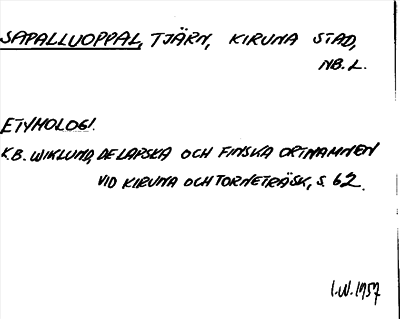 SAPALLUOPPAL, TJÄRN, KIRUNA STAD,
NB. L.
ETYMOLOGI.
K.B. WIKLUND, DE LAPSKA OCH FINSKA ORTNAMNEN
VID KIRUNA OCH TORNETRÄSK, S. 62.
I.W. 1957